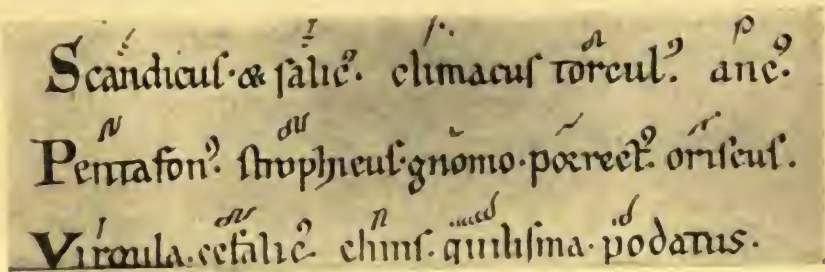 Scandicuſ· & ſalic᷒. climacuſ torcul᷒. anc᷒.
Pentafon᷒. ſtrophicuſ· gnomo· porrect᷒. oriſcuſ.
Virgula. cefalic᷒. cliniſ. quiliſma· podatus.